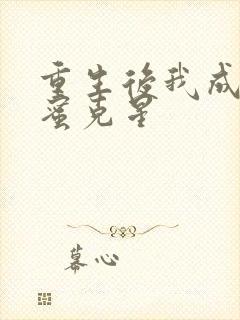 重生後我成
蜜克星
幕心